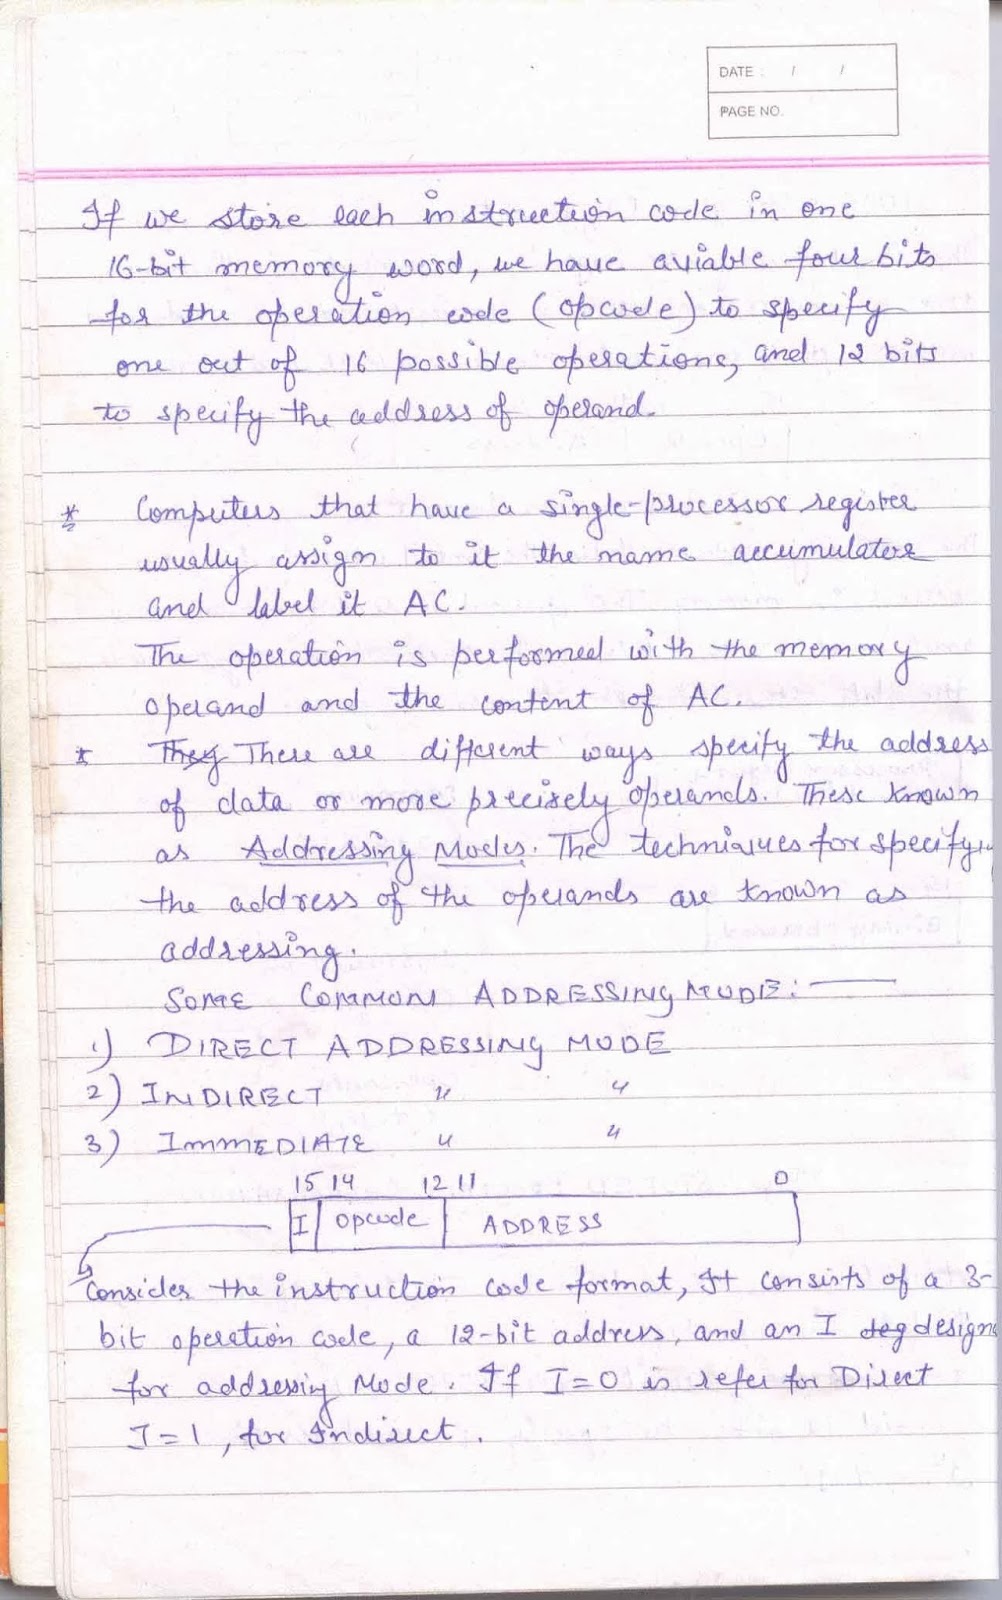 DATE : / /
PAGE NO.
If we store each instruction code in one
16-bit memory word, we have aviable four bits
for the operation code (opcode) to specify
one out of 16 possible operations, and 12 bits
to specify the address of operand.
* Computers that have a single-processor register
usually assign to it the name accumulator
and label it AC.
The operation is performed with the memory
operand and the content of AC.
* They There are different ways specify the address
of data or more precisely operands. These known
as Addressing Modes. The techniques for specify
the address of the operands are known as
addressing.
SOME COMMON ADDRESSING MODE:—
1) DIRECT ADDRESSING MODE
2) INDIRECT " "
3) IMMEDIATE " "
15 14 12 11 0
I opcode ADDRESS
Consider the instruction code format, It consists of a 3-
bit operation code, a 12-bit address, and an I deg design
for addressing Mode. If I=0 is refer for Direct
I=1, for Indirect.